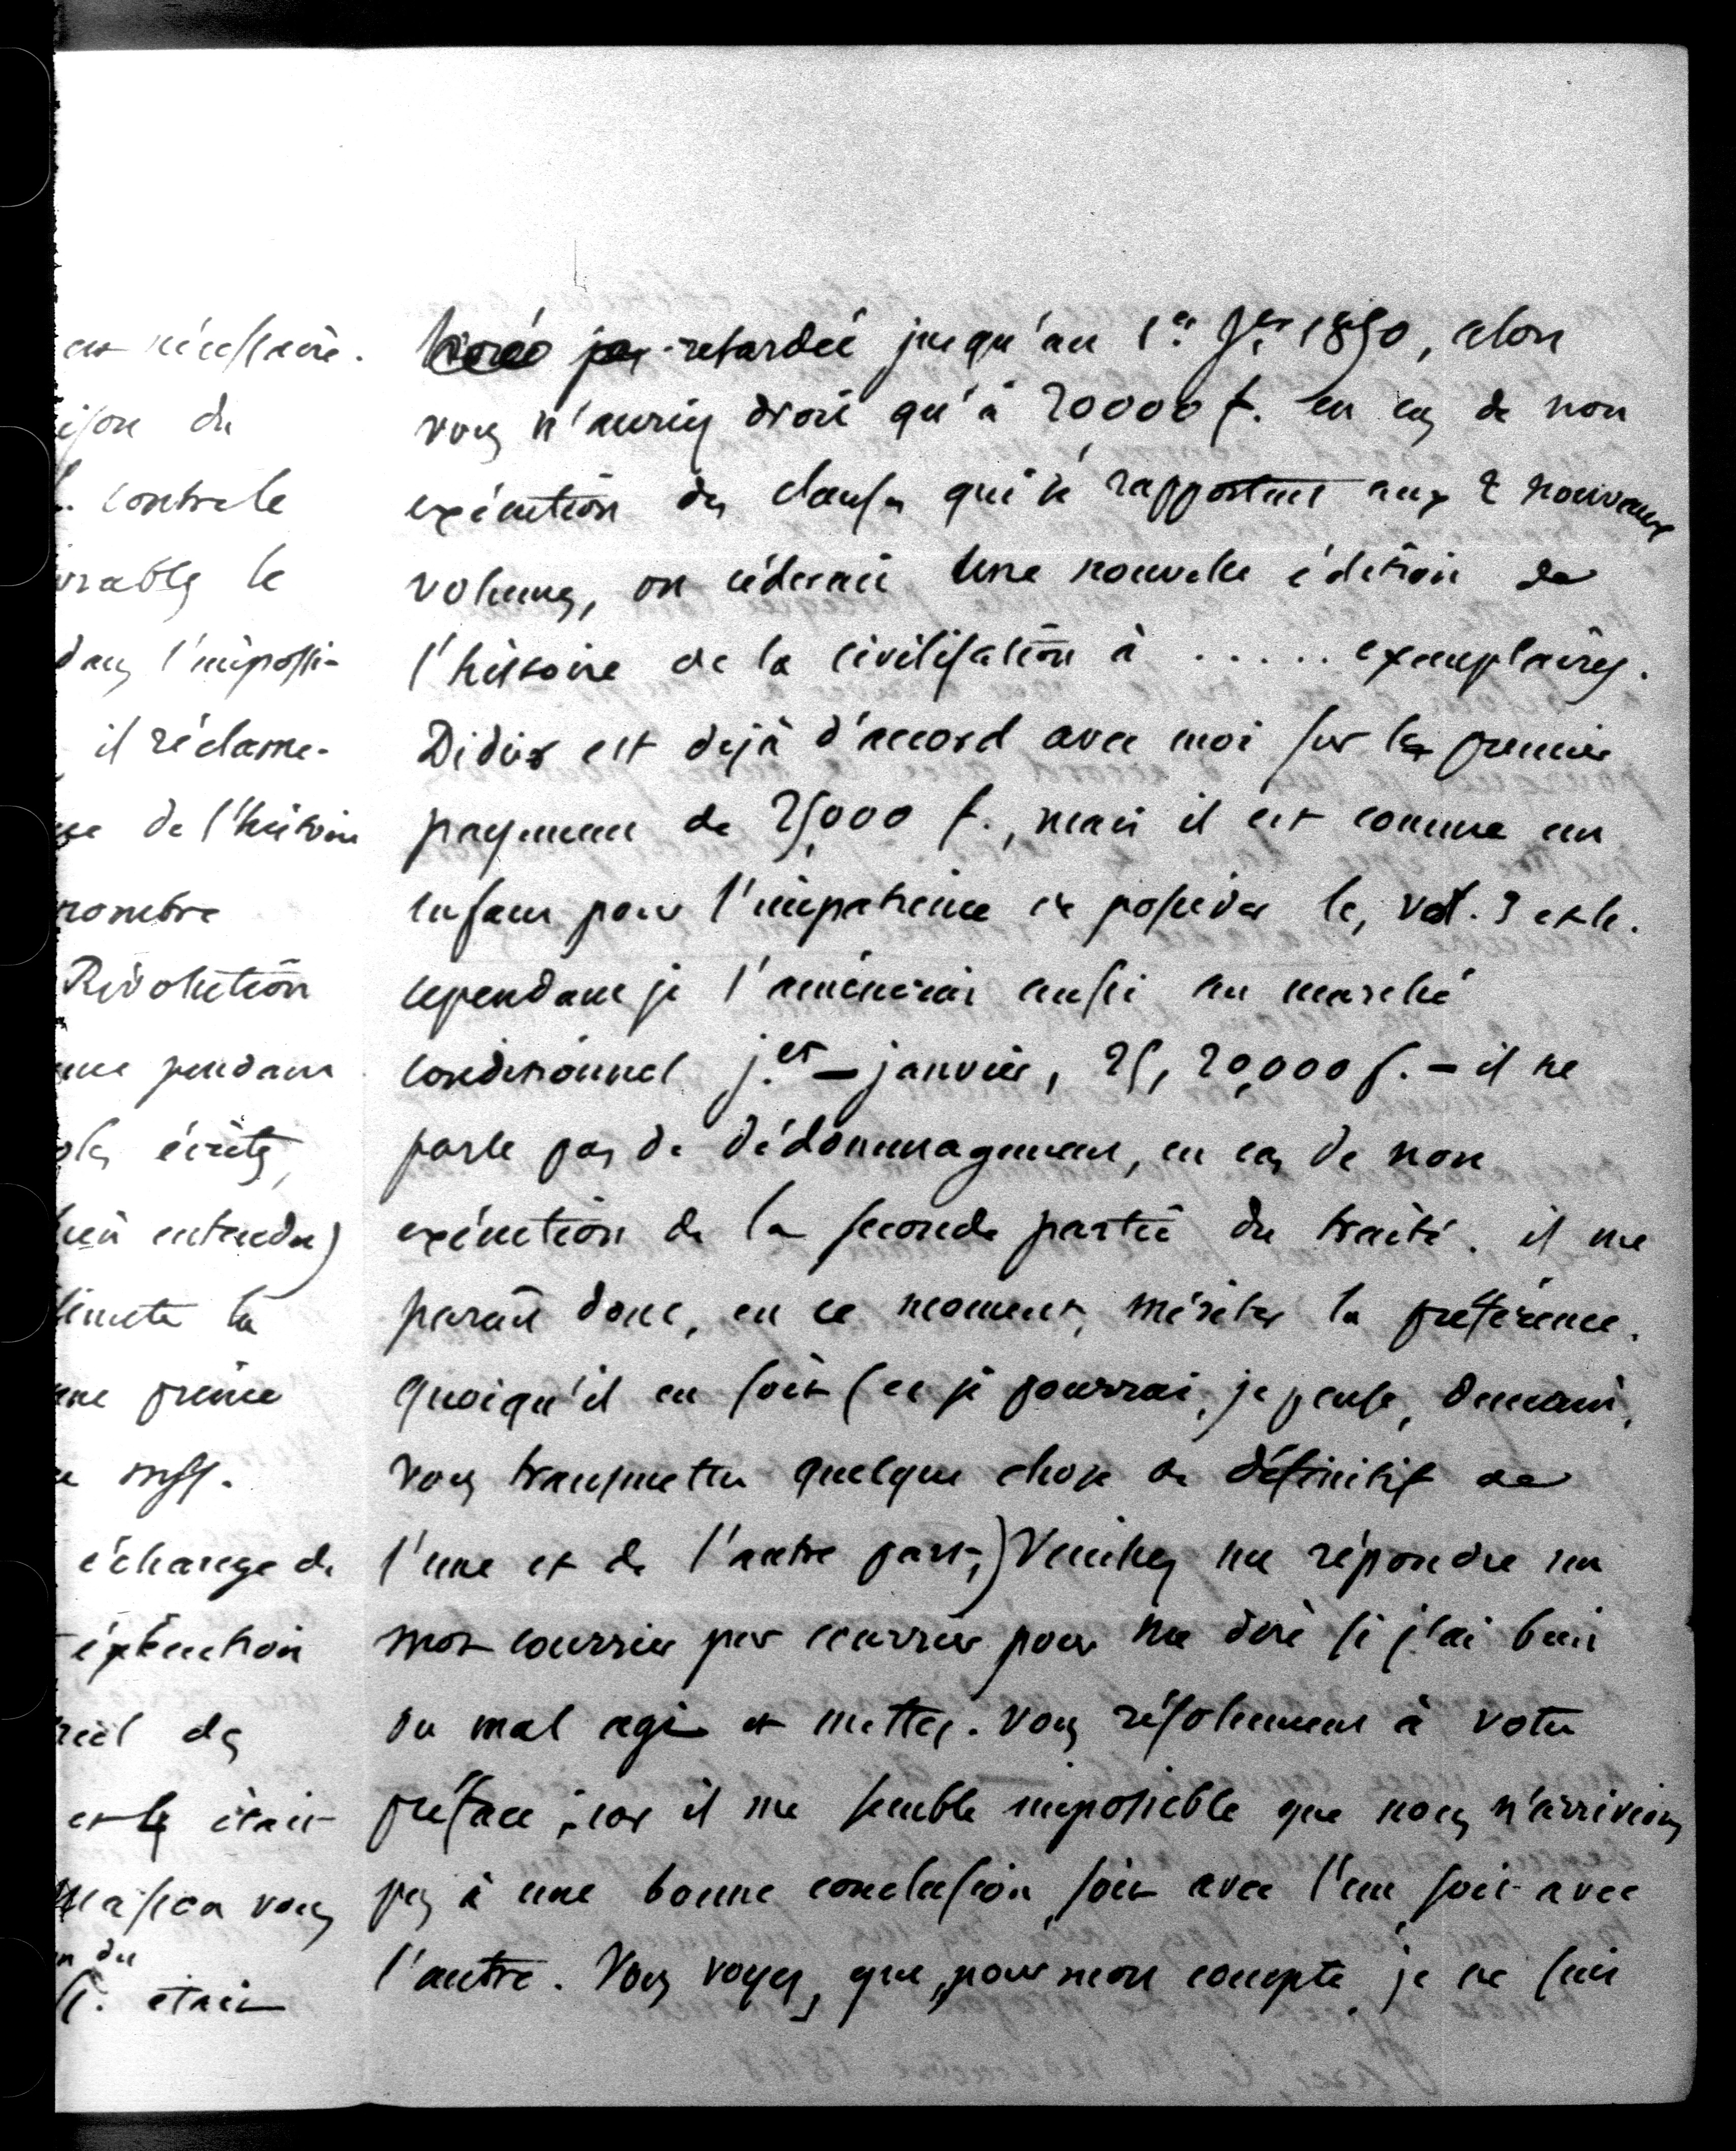 est nécessaire.
ison du
contre le
vrables le
dans l'impossi-
il réclame-
de l'histoire
nombre
Révolution
pendant
écrits,
bien entendu)
la
prime
mss.
échange de
exécution
des
et le était
vous
du
était
retardée jusqu'au 1er Jer 1850, alors
vous n'auriez droit qu'à 20000 f. en cas de non
exécution des clauses qui se rapportent aux 2 nouveaux
volumes, on céderait une nouvelle édition de
l'histoire de la civilisation à ..... exemplaires.
Didier est déjà d'accord avec moi sur le premier
payement de 25,000 f., mais il est comme un
enfant pour l'impatience de posséder les vol. 3 et 4.
cependant je l'amènerai aussi au marché
conditionnel j.er — janvier, 25, 20,000 f. — il ne
parle pas de dédommagement, en cas de non
exécution de la seconde partie du traité. il me
parait donc, en ce moment, mériter la préférence.
Quoiqu'il en soit (et je pourrai, je pense, demain,
vous transmettre quelque chose de définitif de
l'une et de l'autre part,) Veuillez me répondre un
mot courrier par courrier pour me dire si j'ai bien
ou mal agi et mettez-vous résolument à votre
préface; car il me semble impossible que nous n'arrivions
pas à une bonne conclusion, soit avec l'un, soit avec
l'autre. Vous voyez, que, pour mon compte, je ne suis